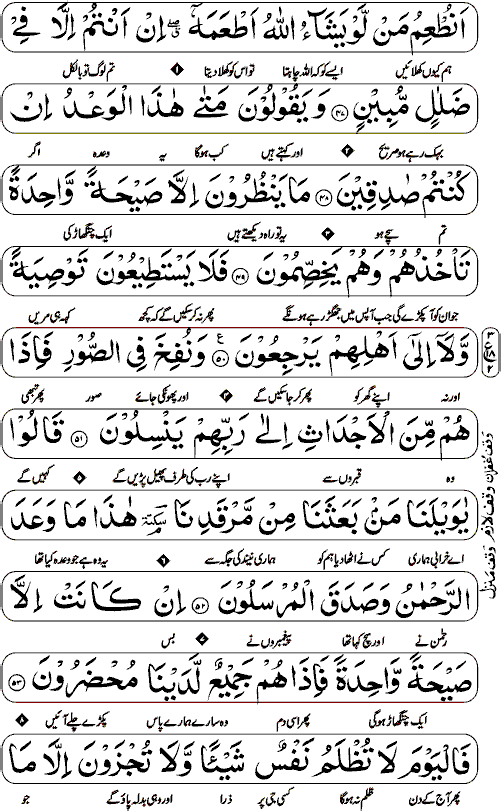 اَنُطْعِمُ مَنْ لَّوْ يَشَآءُ اللّٰهُ اَطْعَمَهٗٓ ۖۗ اِنْ اَنْتُمْ اِلَّا فِيْ
ہم کیوں کھلائیں ایسے کو کہ اللہ چاہتا تو اس کو کھلا دیتا ۱ تم لوگ تو بالکل
ضَلٰلٍ مُّبِيْنٍ ۴۷ وَيَقُوْلُوْنَ مَتٰى هٰذَا الْوَعْدُ اِنْ
بہک رہے ہو صریح ۲ اور کہتے ہیں کب ہوگا یہ وعدہ اگر
كُنْتُمْ صٰدِقِيْنَ ۴۸ مَا يَنْظُرُوْنَ اِلَّا صَيْحَةً وَّاحِدَةً
تم سچے ہو ۳ یہ تو راہ دیکھتے ہیں ایک چنگھاڑ کی
تَاْخُذُهُمْ وَهُمْ يَخِصِّمُوْنَ ۴۹ فَلَا يَسْتَطِيْعُوْنَ تَوْصِيَةً
جو ان کو آ پکڑے گی جب آپس میں جھگڑ رہے ہونگے پھر نہ کرسکیں گے کہ کچھ کہہ ہی مریں
وَّلَآ اِلٰٓى اَهْلِهِمْ يَرْجِعُوْنَ ۵۰ وَنُفِخَ فِي الصُّوْرِ فَاِذَا
اور نہ اپنے گھر کو پھر کر جاسکیں گے ۴ اور پھونکی جائے صور پھر تبھی
هُمْ مِّنَ الْاَجْدَاثِ اِلٰى رَبِّهِمْ يَنْسِلُوْنَ ۵۱ قَالُوْا
وہ قبروں سے اپنے رب کی طرف پھیل پڑیں گے ۵ کہیں گے
يٰوَيْلَنَا مَنْۢ بَعَثَنَا مِنْ مَّرْقَدِنَا ۜ هٰذَا مَا وَعَدَ
اے خرابی ہماری کس نے اٹھا دیا ہم کو ہماری نیند کی جگہ سے ۶ یہ وہ ہے جو وعدہ کیا تھا
الرَّحْمٰنُ وَصَدَقَ الْمُرْسَلُوْنَ ۵۲ اِنْ كَانَتْ اِلَّا
رحمٰن نے اور سچ کہا تھا پیغمبروں نے ۷ بس
صَيْحَةً وَّاحِدَةً فَاِذَا هُمْ جَمِيْعٌ لَّدَيْنَا مُحْضَرُوْنَ ۵۳
ایک چنگھاڑ ہوگی پھر اسی دم وہ سارے ہمارے پاس پکڑے چلے آئیں ۸
فَالْيَوْمَ لَا تُظْلَمُ نَفْسٌ شَيْـًٔا وَّلَا تُجْزَوْنَ اِلَّا مَا
پھر آج کے دن ظلم نہ ہوگا کسی جی پر ذرا اور وہی بدلہ پاؤ گے جو
وقف غفران وقف لازم وقف منزل